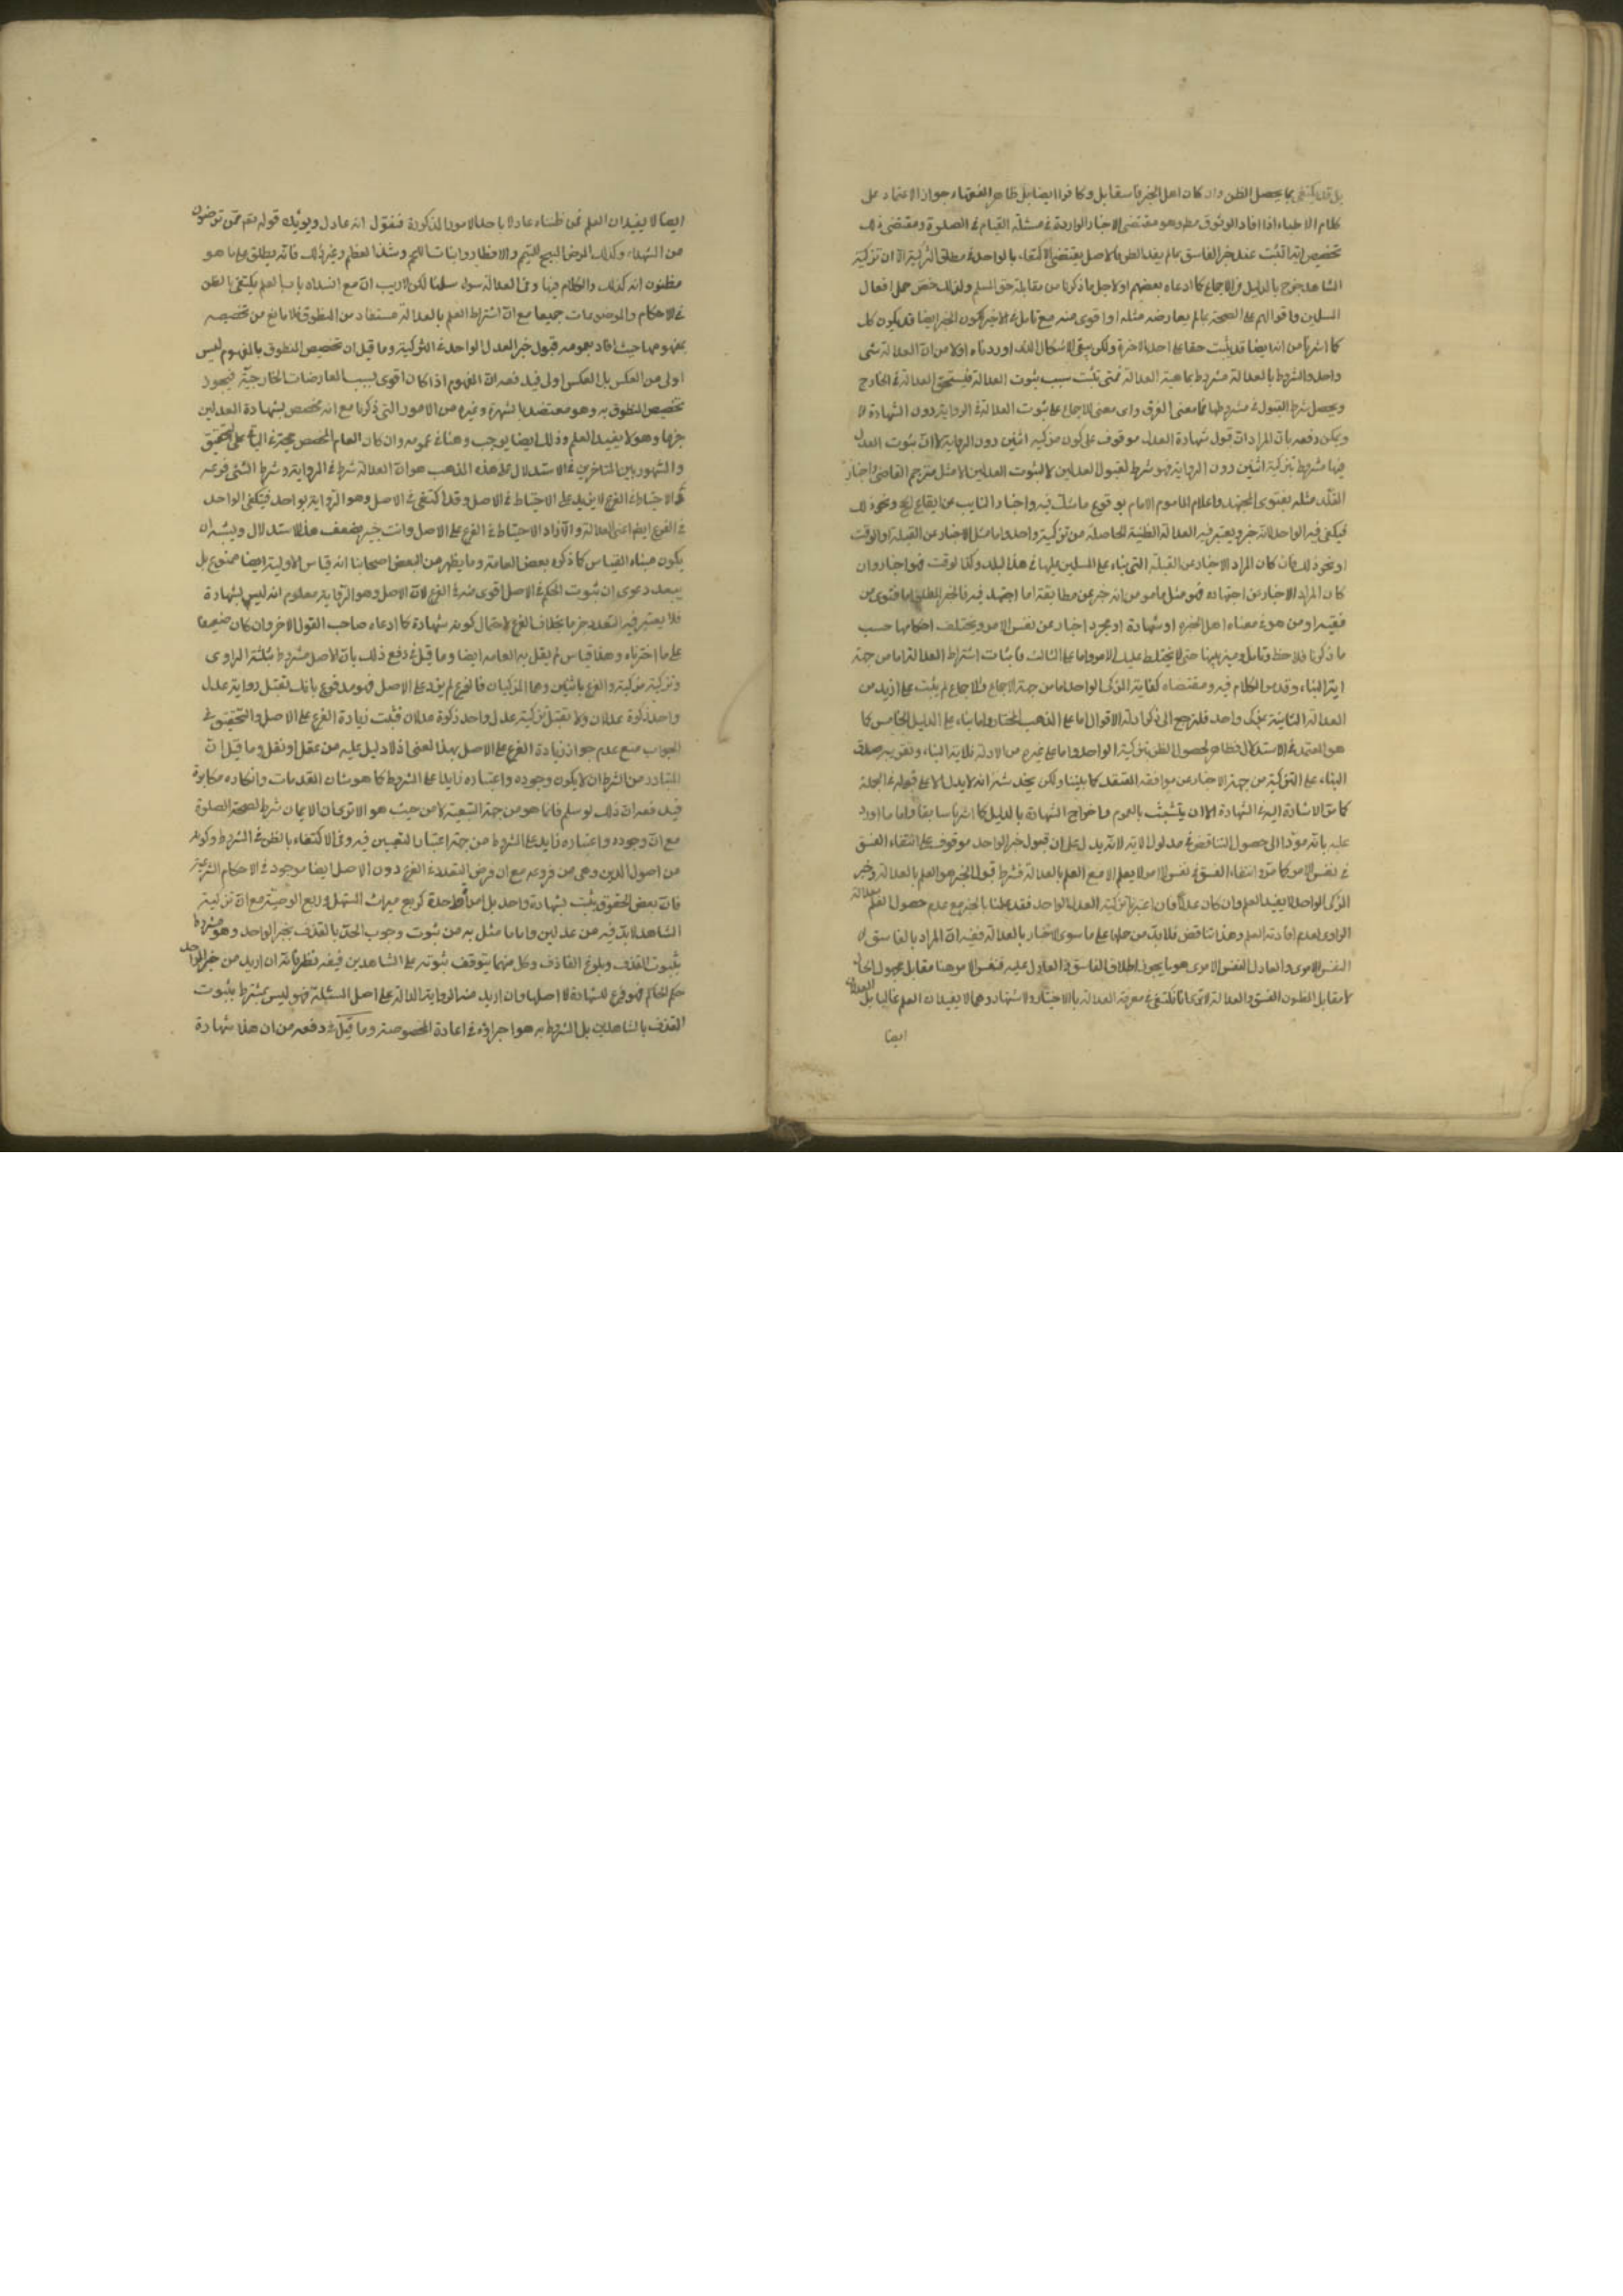 بل قد يكتفى بما يحصل الظن وان كان اهل الخبر فاسقا بل وكافرا ايضا بل ظاهر الفقهاء جواز الاعتماد على
كلام الاطباء اذا افاد الوثوق مط وهو مقتضى الاخبار الواردة في مسئلة القيام في الصلوة ومقتضى ذلك
تخصيص اية التثبت عند خبر الفاسق بما لم يفد الظن فالاصل يقتضى الاكتفاء بالواحد في مطلق التزكية الا ان تزكية
الشاهد خرج بالدليل من الاجماع كما ادعاه بعضهم او لاجل ما ذكرنا من مقابلة حق المسلم ولذلك خص حمل افعال
المسلمين واقوالهم على الصحة بما لم يعارضه مثله او اقوى منه مع تامل في الاخير لكون الخبر ايضا قد يكون كك
كما اشرنا من انه ايضا قد يثبت حقا على احد الاخرة ولكن يبقى الاشكال الذى اوردناه اولا من ان العدالة شى
واحد والمشروط بالعدالة مشروط بماهية العدالة فمتى ثبت سبب ثبوت العدالة فيستحق العدالة في الخارج
ويحصل شرط القبول في مشروطها فما معنى الفرق واى معنى للاجماع على ثبوت العدالة في الرواية دون الشهادة الا
ويمكن دفعه بان المراد ان قبول شهادة العدل موقوف على كون مزكيه اثنين دون الرواية لا ان ثبوت العدل
فيها مشروط بتزكية اثنين دون الرواية فهو شرط لقبول العدلين لا لثبوت العدلين الا مثل مترجم القاضى واخبار
المقلد مثله بفتوى المجتهد واعلام الماموم الامام بوقوع ما شك فيه واخبار النايب عن ايقاع الحج ونحو ذلك
فيكفى فيه الواحد لانه خبر ويعتبر فيه العدالة الظنية الحاصلة من تزكية واحد واما مثل الاخبار عن القبلة او الوقت
او نحو ذلك فان كان المراد الاخبار عن القبلة التى بناء على المسلمين عليها في هذا البلد وكذا الوقت فهو اخبار وان
كان المراد الاخبار عن اجتهاده فهو مثل مامو من انه خبر عن مطابقته لما اجتهد فيه فالخبر المطلق اما فتوى من
فقيه او من هو في معناه اهل الخبره او شهادة او مجرد اخبار عن نفس الامر ويختلف احكامها حسب
ما ذكرنا فلاحظ وتامل وميز بينها حتى لا يختلط عليك الامر واما على الثالث فاثبات اشتراط العدالة اما من جهة
اية البناء وقد مر الكلام فيه ومقتضاه كفاية المزكى الواحد واما من جهة الاجماع والاجماع لم يثبت على ازيد من
العدالة الثابتة بمزك واحد فلنرجع الى ذكر ادلة الاقوال اما على المذهب المختار واما بناء على الدليل الخامس كما
هو المعتمد في الاستدلال فظاهر لحصول الظن بتزكية الواحد واما على غيره من الادلة فلاية البناء وتقريبه صدق
البناء على التزكية من جهة الاخبار عن موافقة المعتقد كما بيننا ولكن يخدشه انه لا يدل الا على قبوله في الجملة
كما مر الاشارة اليه في الشهادة الا ان يتشبث بالعموم واخراج الشهادة بالدليل كما اشرنا سابقا واما ما اورد
عليه بانه مؤد الى حصول التناقض في مدلول الاية لانه يدل على ان قبول خبر الواحد موقوف على انتفاء الفسق
في نفس الامر كما مر وانتفاء الفسق في نفس الامر لا يعلم الا مع العلم بالعدالة فشرط قبول الخبر هو العلم بالعدالة وخبر
المزكى الواحد لا يفيد العلم وان كان عدلا فان اعتبرنا تزكية العدل الواحد فقد عملنا بالخبر مع عدم حصول العلم بعدالة
الراوى لعدم افادته العلم وهذا تناقض فلا بد من حملها على ما سوى الاخبار بالعدالة ففيه ان المراد بالفاسق
النفس الامرى والعادل النفس الامرى هو ما يجوز اطلاق الفاسق والعادل عليه فنفس الامر هنا مقابل مجهول الحال
لا مقابل المظنون الفسق والعدالة الا ترى انا نكتفى في معرفة العدالة بالاختبار والاشتهار وهما لا يفيدان العلم غالبا بل العدلان
ايضا
ايضا لا يفيدان العلم فمن ظنناه عادلا باحد الامور المذكورة فنقول انه عادل ويؤيده قوله تعم ممن ترضون
من الشهداء وكذلك المرض المبيح للتيمم والافطار وانبات اللحم وشد العظم وغير ذلك فانه يطلق على ما هو
مظنون انه كذلك والكلام فيها وفى العدالة سواء سلمنا لكن لا ريب ان مع انسداد باب العلم يكتفى بالظن
في الاحكام والموضوعات جميعا مع ان اشتراط العلم بالعدالة مستفاد من المنطوق فلا مانع من تخصيصه
بمفهومها حيث افاد بعمومه قبول خبر العدل الواحد في التزكية وما قيل ان تخصيص المنطوق بالمفهوم ليس
اولى من العكس بل العكس اولى فيدفعه ان المفهوم اذا كان اقوى بسبب المعارضات الخارجية فيجوز
تخصيص المنطوق به وهو معتضد بالشهرة وغيره من الامور التى ذكرنا مع انه مخصص بشهادة العدلين
جزما وهو لا يفيد العلم وذلك ايضا يوجب وهنا في عمومه وان كان العام المخصص حجة في الباقى على التحقيق
والمشهور بين المتاخرين في الاستدلال على هذه المذهب هو ان العدالة شرط في الرواية وشرط الشئ فرعه
والاحتياط في الفرع لا يزيد على الاحتياط في الاصل وقد اكتفى في الاصل وهو الرواية بواحد فيكفى الواحد
في الفرع ايضا اعنى العدالة والا زاد الاحتياط في الفرع على الاصل وانت خبير بضعف هذا الاستدلال ويشبه ان
يكون مبناه القياس كما ذكره بعض العامة وما يظهر من البعض اصحابنا انه قياس الاولية ايضا ممنوع بل
يبعد دعوى ان ثبوت الحكم في الاصل اقوى منه في الفرع لان الاصل وهو الرواية معلوم انه ليس بشهادة
فلا يعتبر فيه التعدد جزما بخلاف الفرع لاحتمال كونه شهادة كما ادعاه صاحب القول الاخر وان كان ضعيفا
على ما اخترناه وهذا قياس لم يقل به العامه ايضا وما قيل في دفع ذلك بان الاصل مشروط بثلثة الراوى
وتزكية مزكيه والفرع باثنين وهما المزكيان فالفرع لم يزد على الاصل فهو مدفوع بانك تقبل رواية عدل
واحد زكوه عدلان ولا تقبل تزكية عدل واحد زكوة عدلان فثبت زيادة الفرع على الاصل والتحقيق في
الجواب منع عدم جواز زيادة الفرع على الاصل بهذا المعنى اذ لا دليل عليه من عقل او نقل وما قيل ان
المتبادر من الشرط ان لا يكون وجوده واعتباره زايدا على المشروط كما هو شان المقدمات وانكاره مكابرة
فيدفعه ان ذلك لو سلم فانما هو من جهة التبعية لا من حيث هو الا ترى ان الايمان شرط لصحة الصلوة
مع ان وجوده واعتباره زايد على المشروط من جهة اعتبار اليقين فيه وفى الاكتفاء بالظن في المشروط وكونه
من اصول الدين وهى من فروعه مع ان فرض التعدد في الفرع دون الاصل ايضا موجود في الاحكام الشرعية
فان بعض الحقوق يثبت بشهادة واحد بل امراة واحدة كربع ميراث المستهل وربع الوصية مع ان تزكية
الشاهد لا بد فيه من عدلين واما ما مثل به من ثبوت وجوب الحد بالقذف بخبر الواحد وهو مشروط
بثبوت القذف وبلوغ القاذف وكل منهما يتوقف ثبوته على الشاهدين ففيه نظر فانه ان اريد من خبر الواحد
حكم الحاكم فهو فرع للشهادة لا اصلها وان اريد منه الرواية الدالة على اصل المسئلة فهو ليس بمشترط بثبوت
القذف بالشاهدين بل المشروط به هو اجراؤه في المادة المخصوصة وما قيل في دفعه من ان هذا شهادة